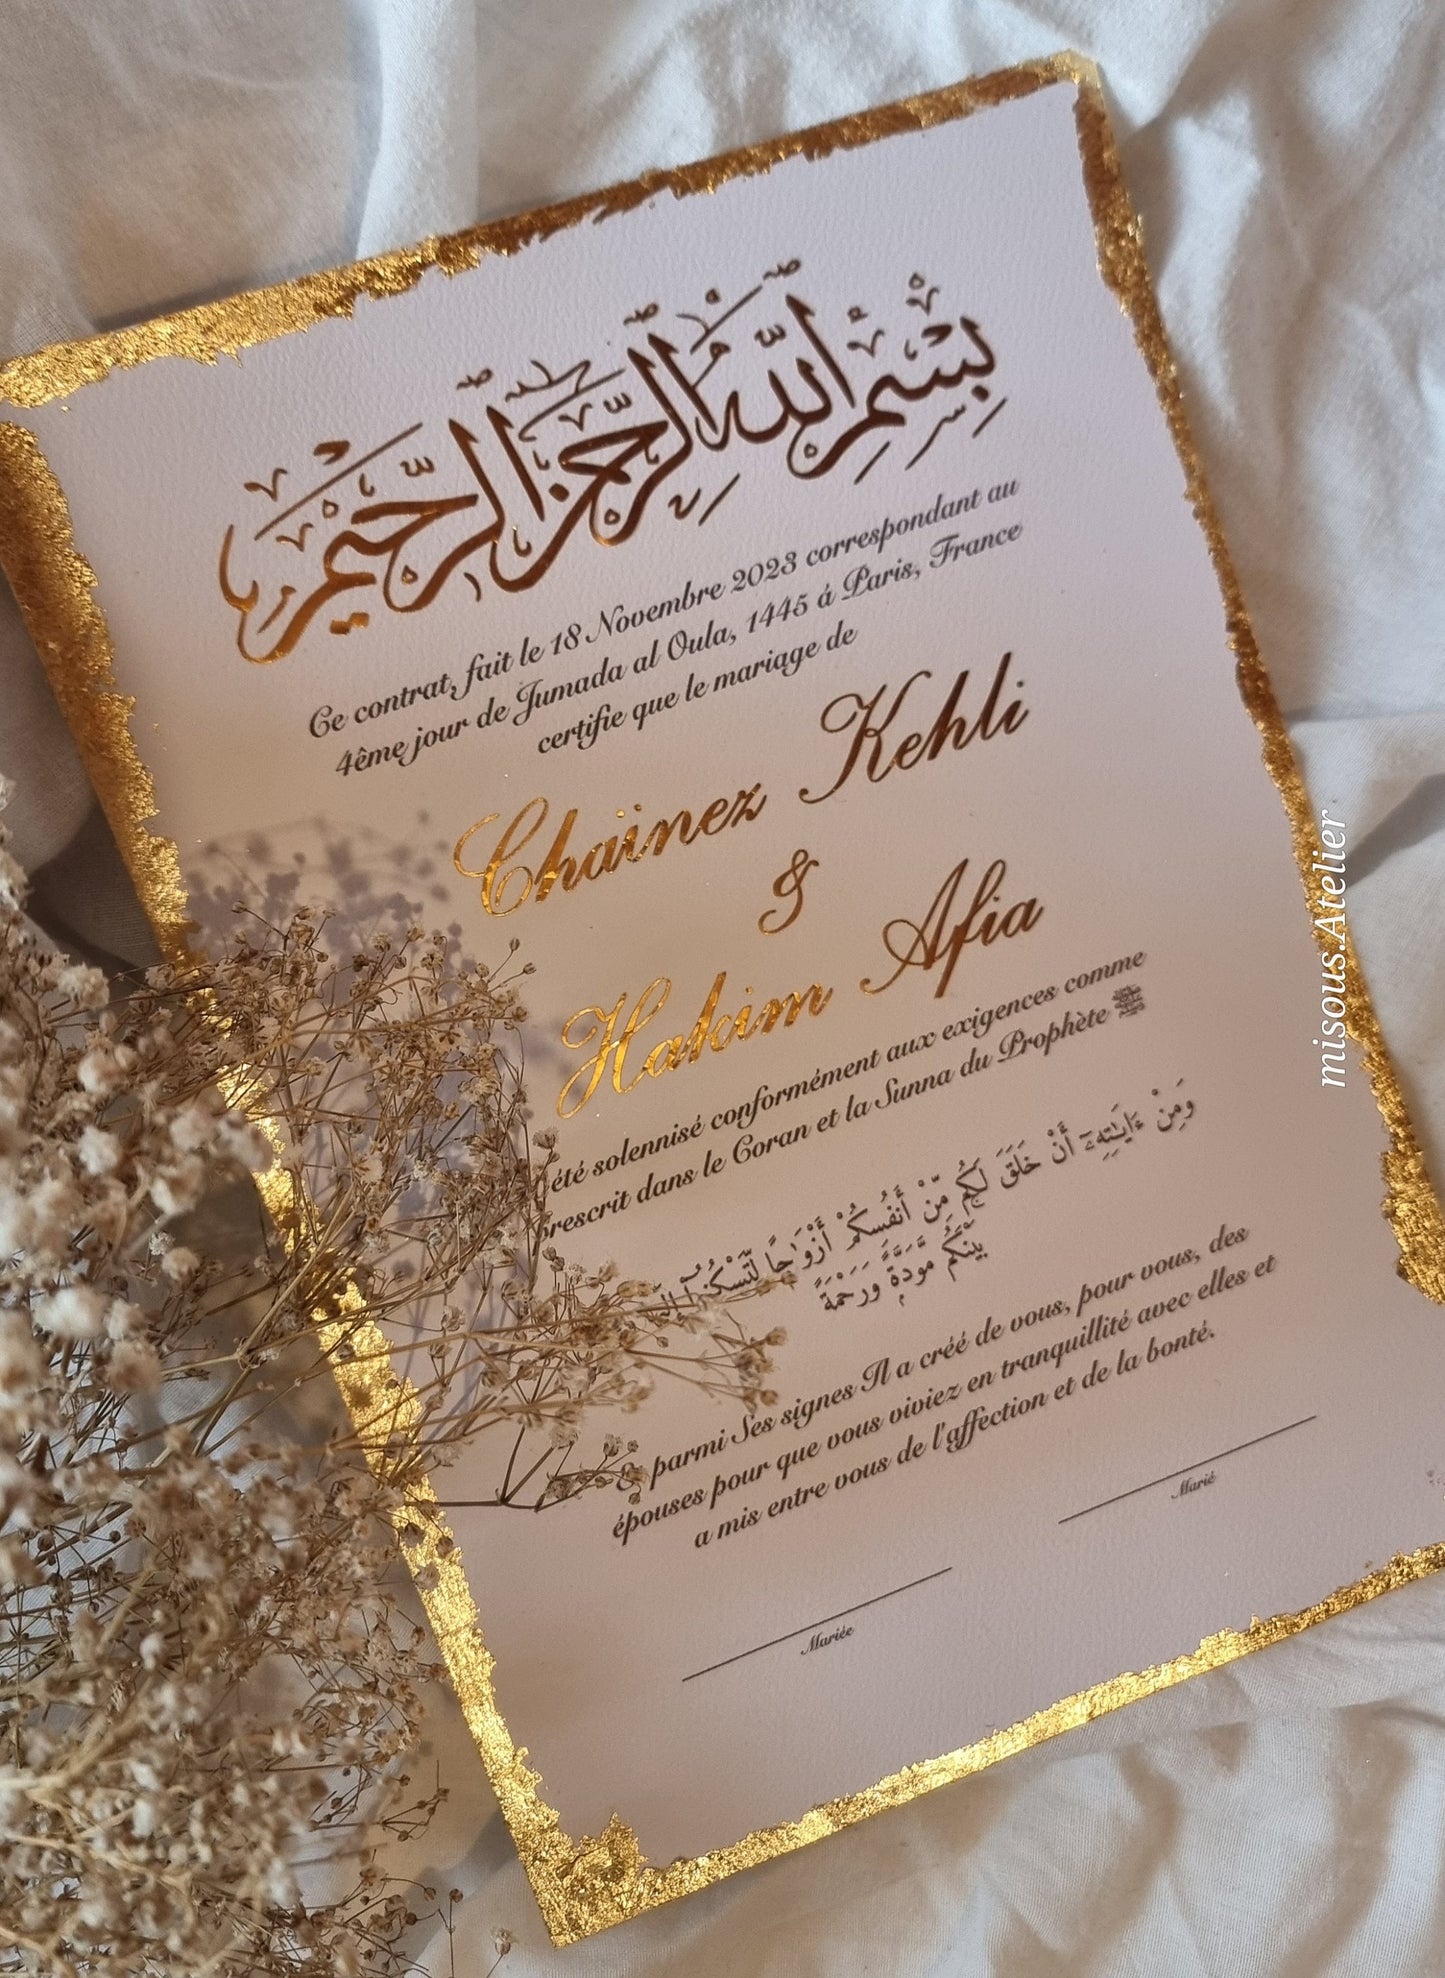 بِسْمِ اللَّهِ الرَّحْمَنِ الرَّحِيمِ
Ce contrat, fait le 18 Novembre 2023 correspondant au
4ême jour de Jumada al Oula, 1445 á Paris, France
certifie que le mariage de
Chaïnez Kehli
&
Hakim Afia
été solennisé conformément aux exigences comme
prescrit dans le Coran et la Sunna du Prophète ﷺ
وَمِنْ ءَايَـٰتِهِۦٓ أَنْ خَلَقَ لَكُم مِّنْ أَنفُسِكُمْ أَزْوَٰجًا لِّتَسْكُنُوٓا۟
بَيْنَكُم مَّوَدَّةً وَرَحْمَةً
parmi Ses signes Il a créé de vous, pour vous, des
épouses pour que vous viviez en tranquillité avec elles et
a mis entre vous de l'affection et de la bonté.
Marié
Mariée
misous.Atelier